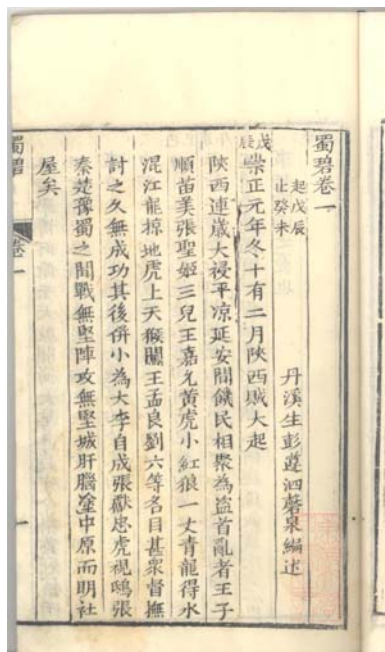 蜀碧卷一
起戊辰
止癸未
丹溪生彭遵泗磬泉編述
戊辰
崇正元年冬十有二月陝西賊大起
陝西連歲大祲平凉延安間饑民相聚為盜首亂者王子
順苗美張聖姬三兒王嘉允黃虎小紅狼一丈青龍得水
混江龍掠地虎上天猴闖王孟良劉六等名目甚衆督撫
討之久無成功其後併小為大李自成張獻忠虎視鴟張
秦楚豫蜀之間戰無堅陣攻無堅城肝腦塗中原而明社
屋矣
蜀碧
卷一
一